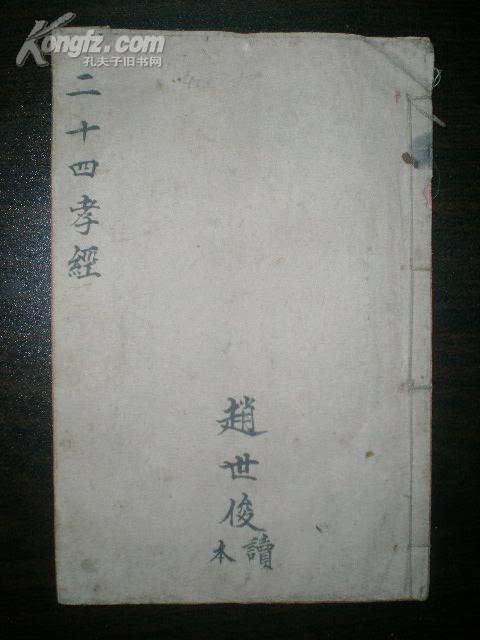 Kongfz.com
孔夫子旧书网
二十四孝經
趙世俊
讀本